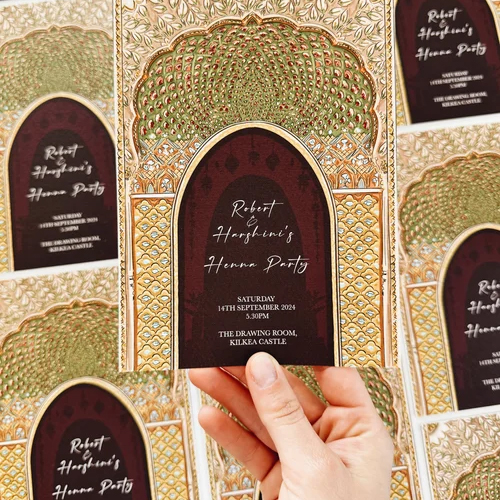 Robert
&
Harshini's
Henna Party
SATURDAY
14TH SEPTEMBER 2024
5.30PM
THE DRAWING ROOM,
KILKEA CASTLE
Robert
&
Harshini's
Henna Party
SATURDAY
14TH SEPTEMBER 2024
5.30PM
THE DRAWING ROOM,
KILKEA CASTLE
Robert
&
Harshini's
Henna Party
SATURDAY
14TH SEPTEMBER 2024
5.30PM
THE DRAWING ROOM,
KILKEA CASTLE
Robert
&
Harshini's
Henna Party